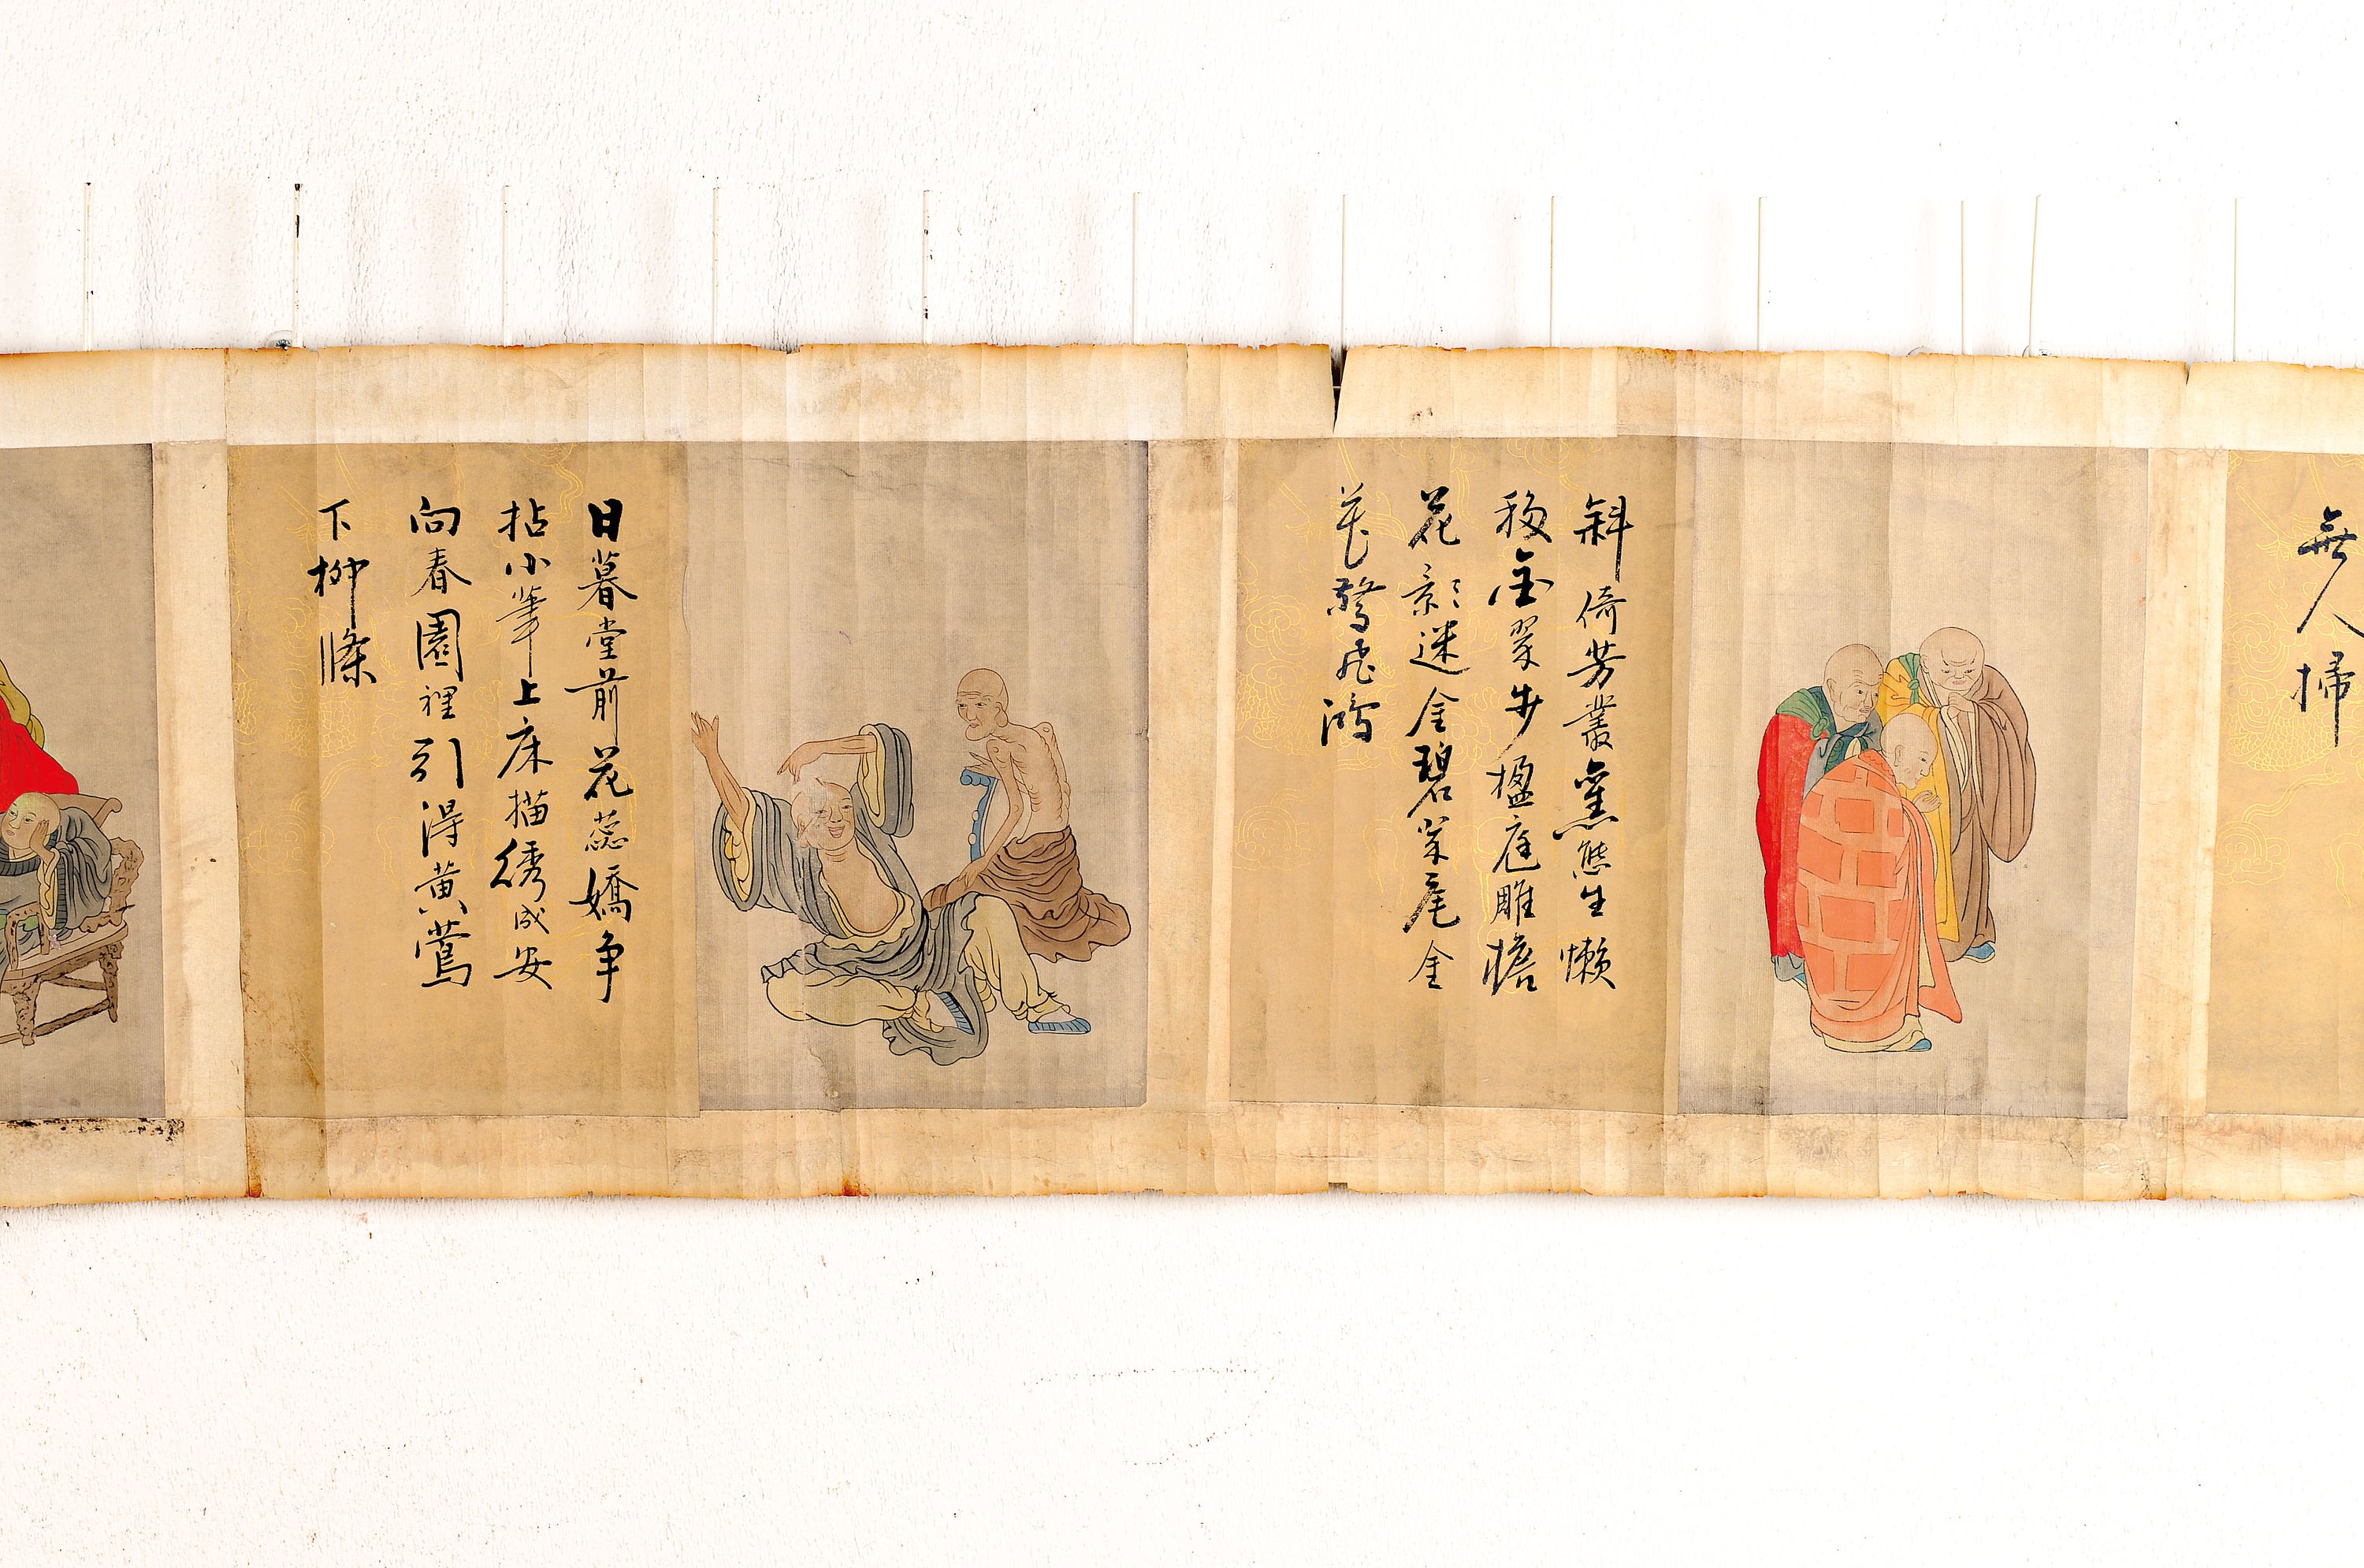 無人掃
斜倚芳叢態生懶
移金翠步楹庭雕檐
花影迷金碧尾金
驚飛鴻
日暮堂前花蕊嬌争
拈小筆上床描綉成安
向春園裡引得黄鶯
下柳條